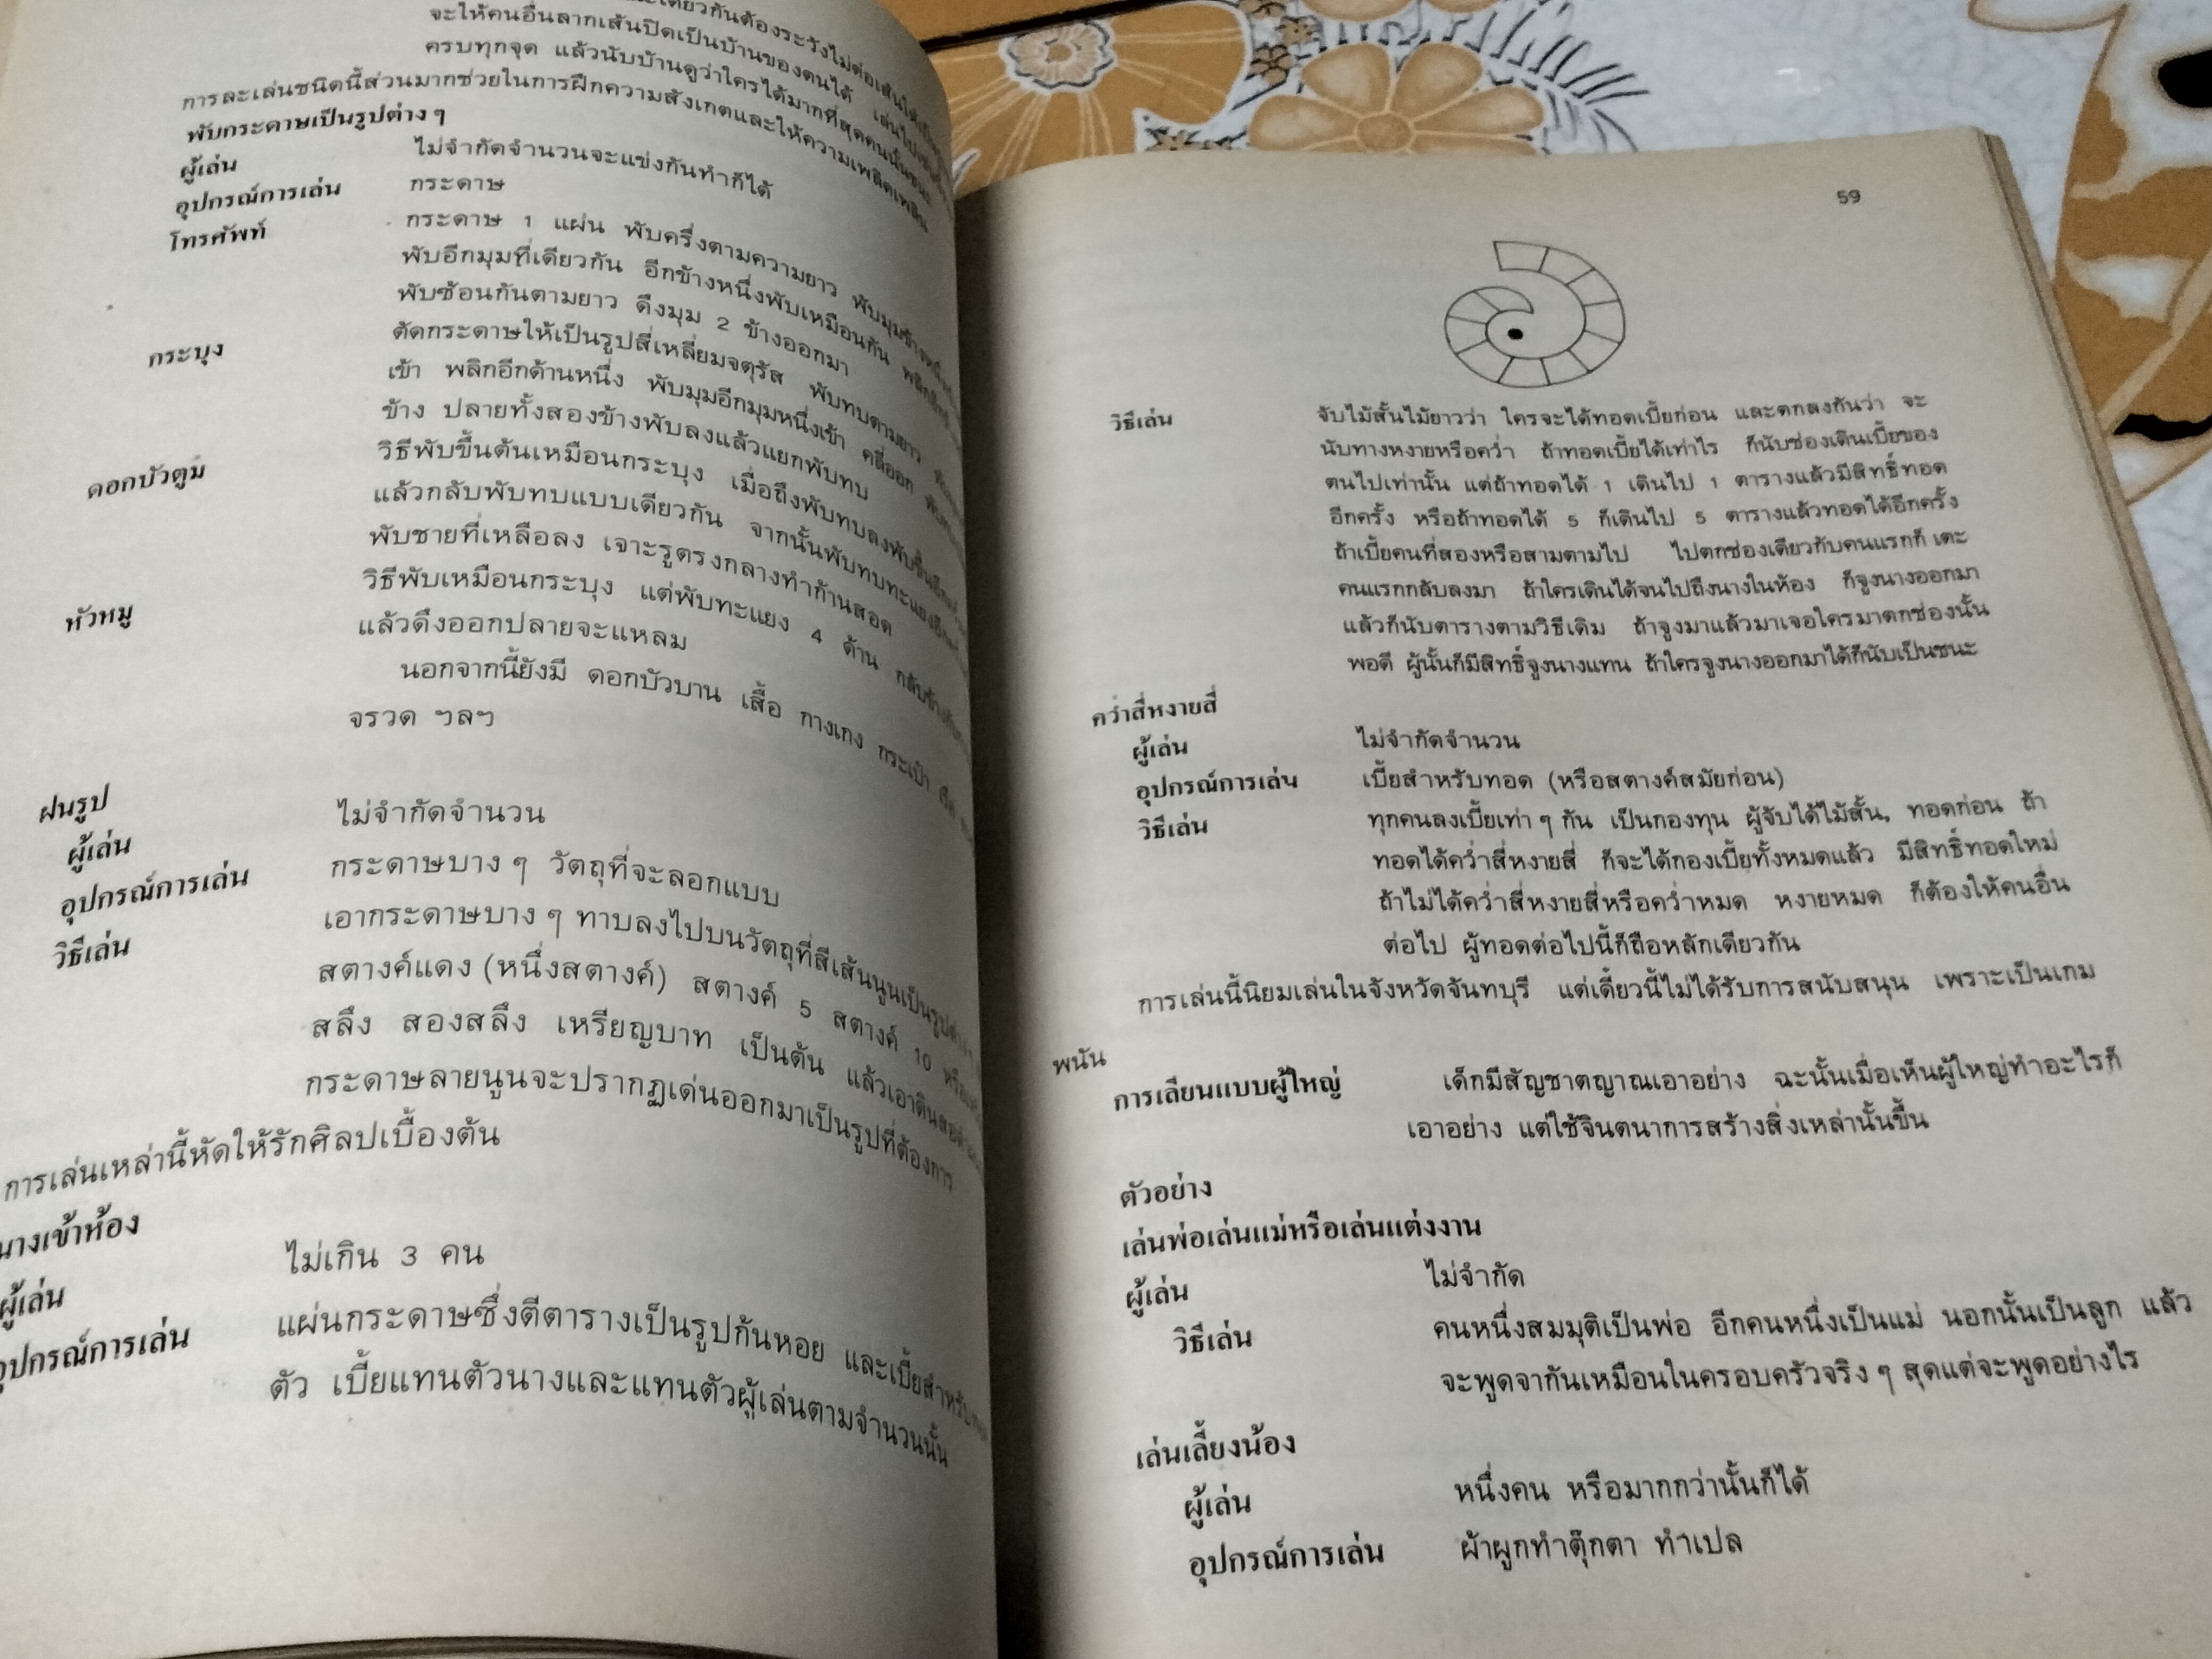 จะให้คนอื่นลากเส้นปิดเป็นบ้านของตนได้
ครบทุกจุด แล้วนับบ้านดูว่าใครได้มากที่สุดคนนั้นชนะ
การละเล่นชนิดนี้ส่วนมากช่วยในการฝึกความสังเกตและให้ความเพลิดเพลิน
พับกระดาษเป็นรูปต่าง ๆ
ผู้เล่น ไม่จำกัดจำนวนจะแข่งกันทำก็ได้
อุปกรณ์การเล่น กระดาษ
โทรศัพท์ กระดาษ 1 แผ่น พับครึ่งตามความยาว พับมุมข้างหนึ่ง
พับอีกมุมที่เดียวกัน อีกข้างหนึ่งพับเหมือนกัน
พับซ้อนกันตามยาว ดึงมุม 2 ข้างออกมา
กระบุง ตัดกระดาษให้เป็นรูปสี่เหลี่ยมจตุรัส พับทบตามยาว
เข้า พลิกอีกด้านหนึ่ง พับมุมอีกมุมหนึ่งเข้า คลี่ออก
ข้าง ปลายทั้งสองข้างพับลงแล้วแยกพับทบ
ดอกบัวตูม วิธีพับขึ้นต้นเหมือนกระบุง เมื่อถึงพับทบลงพับขึ้น
แล้วกลับพับทบแบบเดียวกัน จากนั้นพับทบทะแยง
พับชายที่เหลือลง เจาะรูตรงกลางทำก้านสอด
หัวหมู วิธีพับเหมือนกระบุง แต่พับทะแยง 4 ด้าน
แล้วดึงออกปลายจะแหลม
นอกจากนี้ยังมี ดอกบัวบาน เสื้อ กางเกง กระเป๋า
จรวด ฯลฯ
ฝนรูป
ผู้เล่น ไม่จำกัดจำนวน
อุปกรณ์การเล่น กระดาษบาง ๆ วัตถุที่จะลอกแบบ
วิธีเล่น เอากระดาษบาง ๆ ทาบลงไปบนวัตถุที่สีเส้นนูนเป็นรูปต่าง ๆ
สตางค์แดง (หนึ่งสตางค์) สตางค์ 5 สตางค์ 10 หรือ
สลึง สองสลึง เหรียญบาท เป็นต้น แล้วเอาดินสอ
กระดาษลายนูนจะปรากฏเด่นออกมาเป็นรูปที่ต้องการ
การเล่นเหล่านี้หัดให้รักศิลปเบื้องต้น
นางเข้าห้อง
ผู้เล่น ไม่เกิน 3 คน
อุปกรณ์การเล่น แผ่นกระดาษซึ่งตีตารางเป็นรูปก้นหอย และเบี้ยสำหรับ
ตัว เบี้ยแทนตัวนางและแทนตัวผู้เล่นตามจำนวนนั้น
59
วิธีเล่น จับไม้สั้นไม้ยาวว่า ใครจะได้ทอดเบี้ยก่อน และตกลงกันว่า จะ
นับทางหงายหรือคว่ำ ถ้าทอดเบี้ยได้เท่าไร ก็นับช่องเดินเบี้ยของ
ตนไปเท่านั้น แต่ถ้าทอดได้ 1 เดินไป 1 ตารางแล้วมีสิทธิ์ทอด
อีกครั้ง หรือถ้าทอดได้ 5 ก็เดินไป 5 ตารางแล้วทอดได้อีกครั้ง
ถ้าเบี้ยคนที่สองหรือสามตามไป ไปตกช่องเดียวกับคนแรกก็ เตะ
คนแรกกลับลงมา ถ้าใครเดินได้จนไปถึงนางในห้อง ก็จูงนางออกมา
แล้วก็นับตารางตามวิธีเดิม ถ้าจูงมาแล้วมาเจอใครมาตกช่องนั้น
พอดี ผู้นั้นก็มีสิทธิ์จูงนางแทน ถ้าใครจูงนางออกมาได้ก็นับเป็นชนะ
คว่ำสี่หงายสี่
ผู้เล่น ไม่จำกัดจำนวน
อุปกรณ์การเล่น เบี้ยสำหรับทอด (หรือสตางค์สมัยก่อน)
วิธีเล่น ทุกคนลงเบี้ยเท่า ๆ กัน เป็นกองทุน ผู้จับได้ไม้สั้น, ทอดก่อน ถ้า
ทอดได้คว่ำสี่หงายสี่ ก็จะได้กองเบี้ยทั้งหมดแล้ว มีสิทธิ์ทอดใหม่
ถ้าไม่ได้คว่ำสี่หงายสี่หรือคว่ำหมด หงายหมด ก็ต้องให้คนอื่น
ต่อไป ผู้ทอดต่อไปนี้ก็ถือหลักเดียวกัน
การเล่นนี้นิยมเล่นในจังหวัดจันทบุรี แต่เดี๋ยวนี้ไม่ได้รับการสนับสนุน เพราะเป็นเกม
พนัน
การเลียนแบบผู้ใหญ่ เด็กมีสัญชาตญาณเอาอย่าง ฉะนั้นเมื่อเห็นผู้ใหญ่ทำอะไรก็
เอาอย่าง แต่ใช้จินตนาการสร้างสิ่งเหล่านั้นขึ้น
ตัวอย่าง
เล่นพ่อเล่นแม่หรือเล่นแต่งงาน
ผู้เล่น ไม่จำกัด
วิธีเล่น คนหนึ่งสมมุติเป็นพ่อ อีกคนหนึ่งเป็นแม่ นอกนั้นเป็นลูก แล้ว
จะพูดจากันเหมือนในครอบครัวจริง ๆ สุดแต่จะพูดอย่างไร
เล่นเลี้ยงน้อง
ผู้เล่น หนึ่งคน หรือมากกว่านั้นก็ได้
อุปกรณ์การเล่น ผ้าผูกทำตุ๊กตา ทำเปล